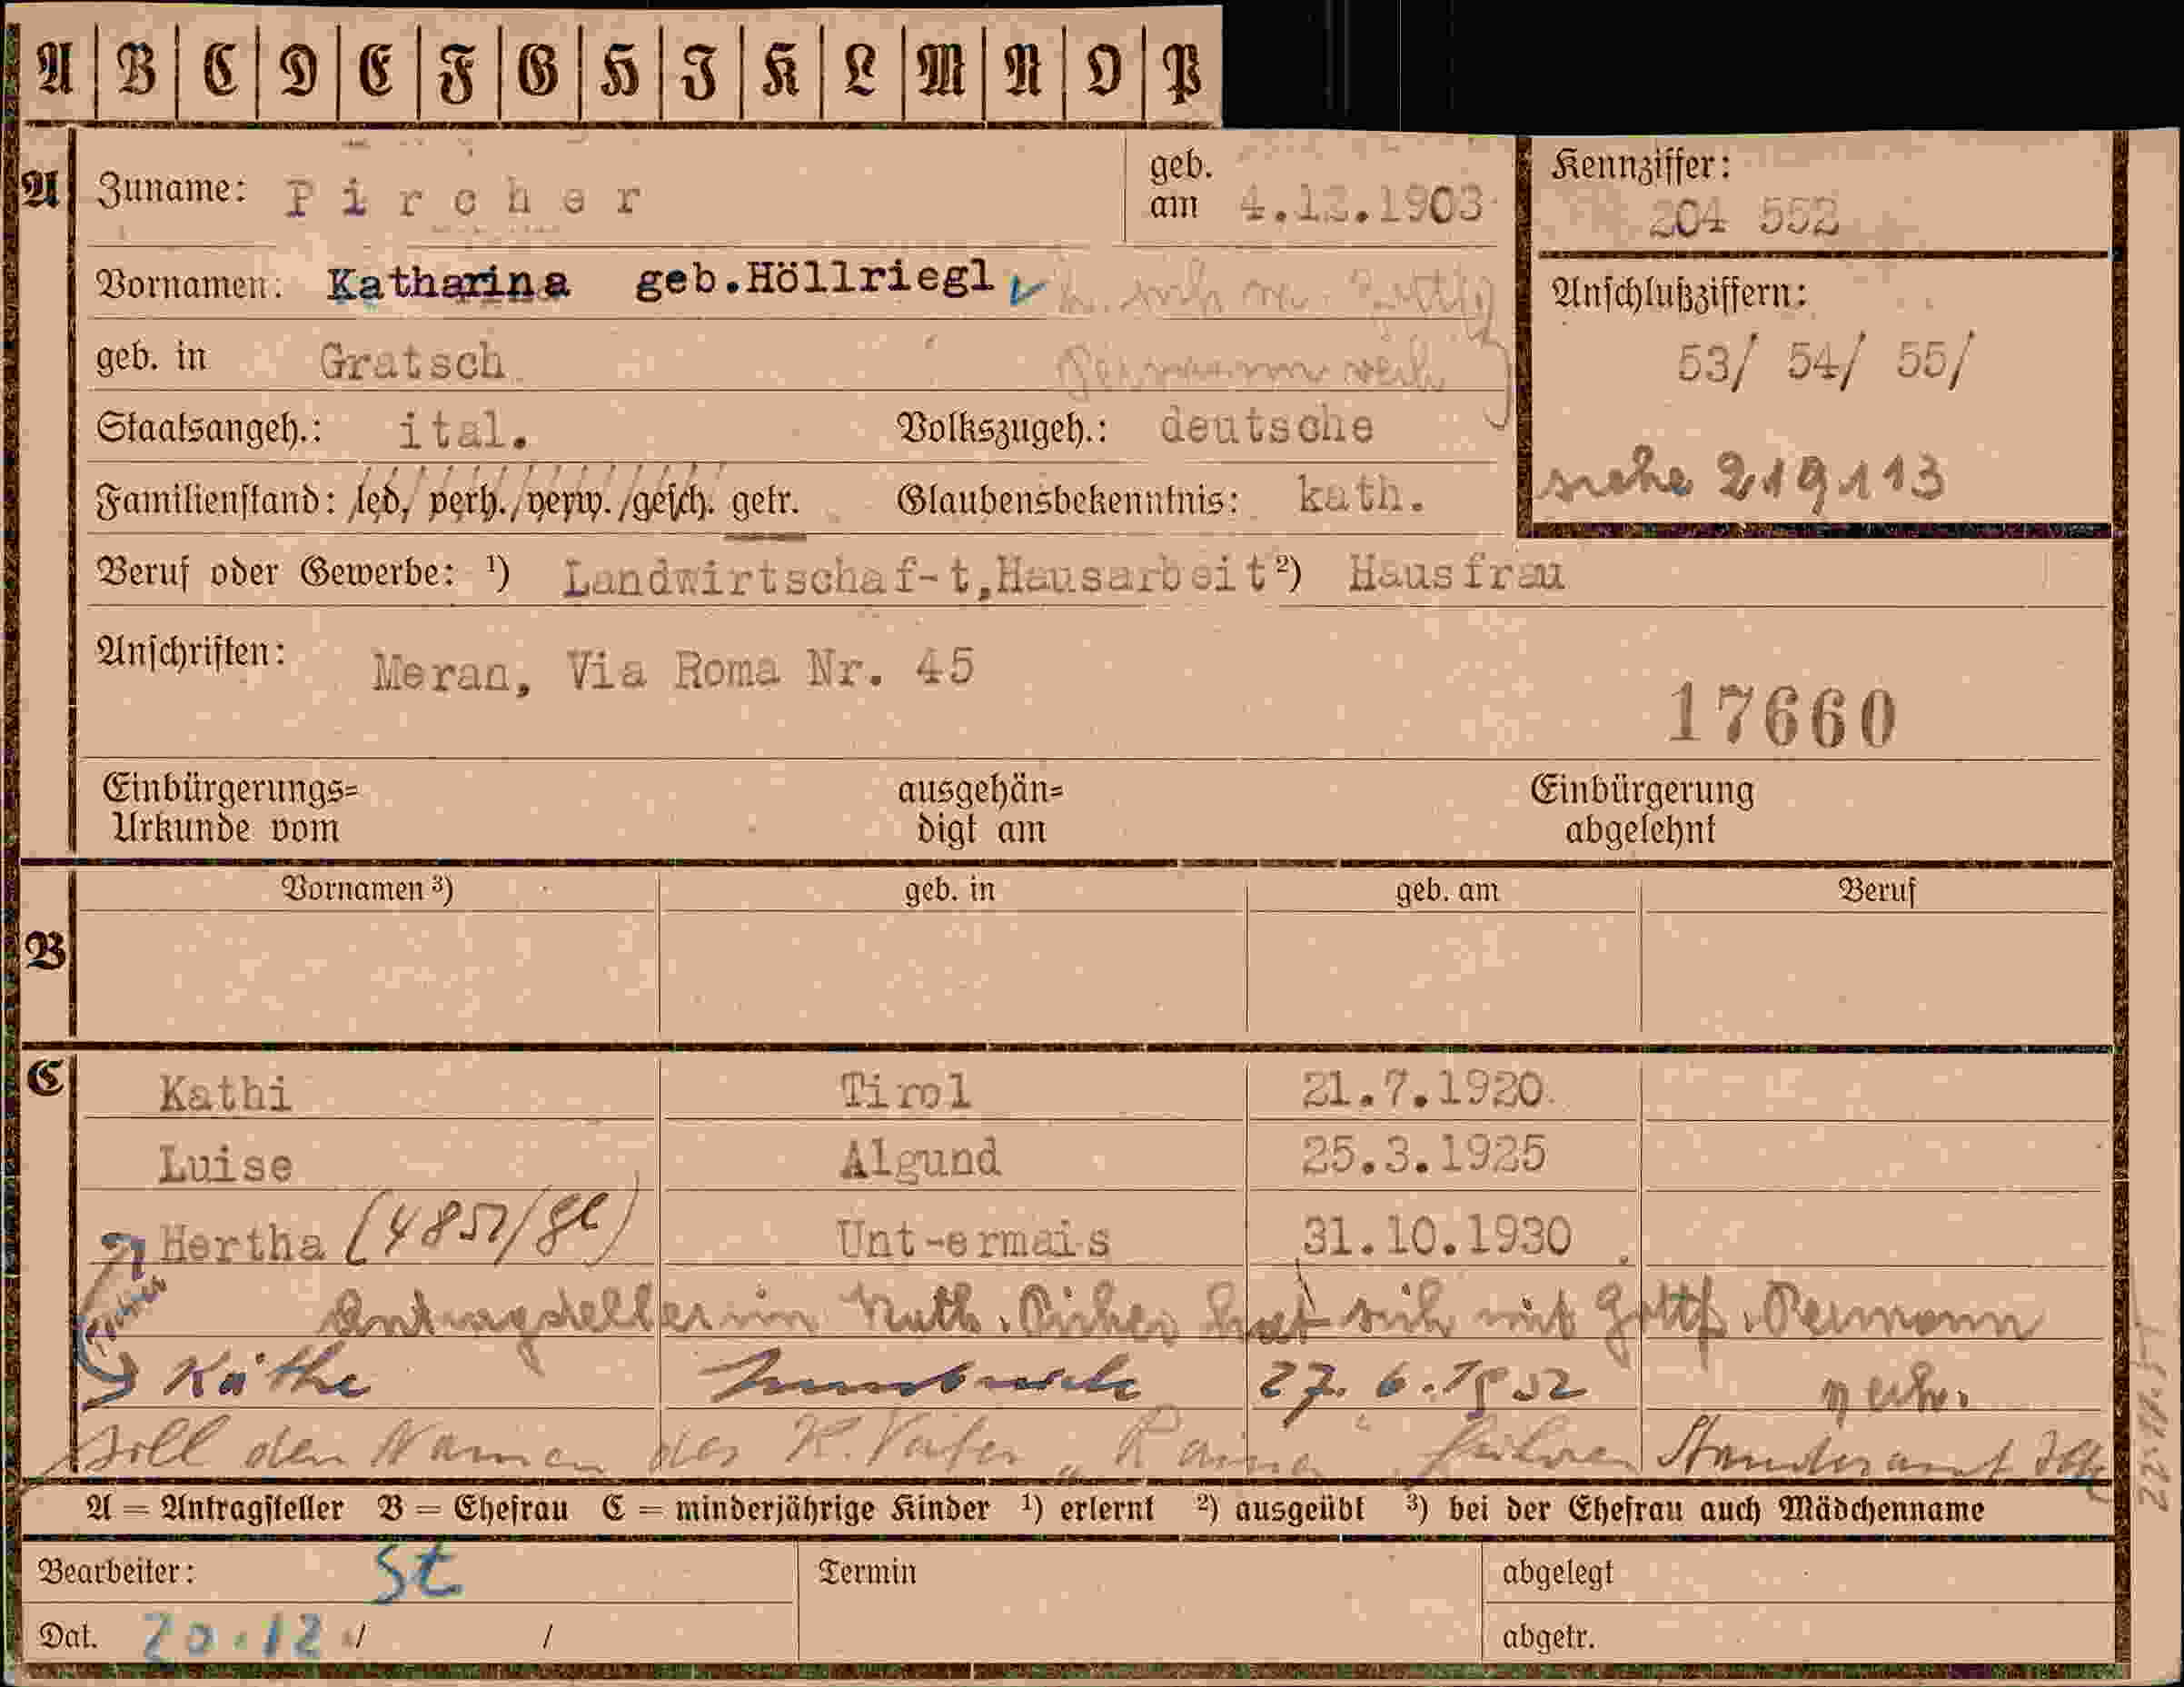 A B C D E F G H I K L M N O P
A Zuname: Pircher geb. am 4.12.1903 Kennziffer: 204 552
Vornamen: Katharina geb.Höllriegl
Anschlußziffern:
geb. in Gratsch 53/ 54/ 55/
Staatsangeh.: ital. Volkszugeh.: deutsche
siehe 219113
Familienstand: led, verh./verw./gesch. getr. Glaubensbekenntnis: kath.
Beruf oder Gewerbe: ¹) Landwirtschaf-t,Hausarbeit ²) Hausfrau
Anschriften: Meran, Via Roma Nr. 45
17660
Einbürgerungs= ausgehän= Einbürgerung
Urkunde vom digt am abgelehnt
Vornamen ³) geb. in geb. am Beruf
B
C Kathi Tirol 21.7.1920.
Luise Algund 25.3.1925
Hertha Unt-ermais 31.10.1930
Antragstellerin Kath. Pircher hat sich mit Gottf. Permann
Käthe Innsbruck 27. 6. verh.
soll den Namen des K. Vaters führen Standesamt
A = Antragsteller B = Ehefrau C = minderjährige Kinder ¹) erlernt ²) ausgeübt ³) bei der Ehefrau auch Mädchenname
Bearbeiter: St Termin abgelegt
Dat. 20.12 / / abgetr.